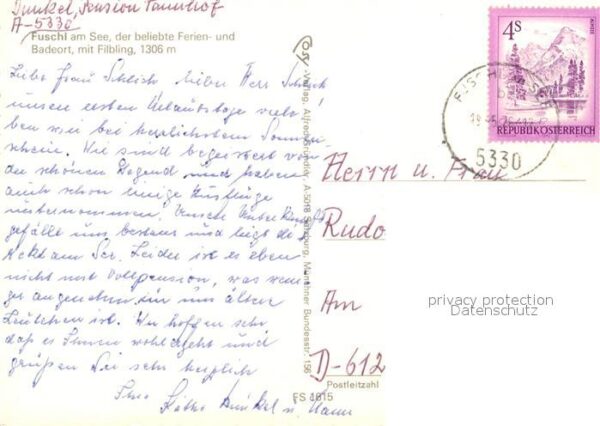 Dunkel, Pension Tannhof
A-5330
Fuschl am See, der beliebte Ferien- und
Badeort, mit Filbling, 1306 m
Liebe Frau Schlich, lieber Herr Schlich
unsere ersten Urlaubstage verle
ben wir bei herrlichstem Sonnen
schein. Wir sind begeistert von
der schönen Gegend und haben
auch schon einige Ausflüge
unternommen. Unsere Unterkunft
gefällt uns bestens und liegt di
rekt am See. Leider ist es eben
nicht mit Vollpension, was weni
ger angenehm für uns ältere
Leutchen ist. Wir hoffen sehr
daß es Ihnen wohl ergeht und
grüßen Sie sehr herzlich
Ihre
Käthe Dunkel u. Mann
Cosy-Verlag, Alfred Salzburg, Münchner Bundesstr. 156
4S
REPUBLIK ÖSTERREICH
5330
Herrn u. Frau
Rudo
Am
D-612
Postleitzahl
FS 1615
privacy protection
Datenschutz